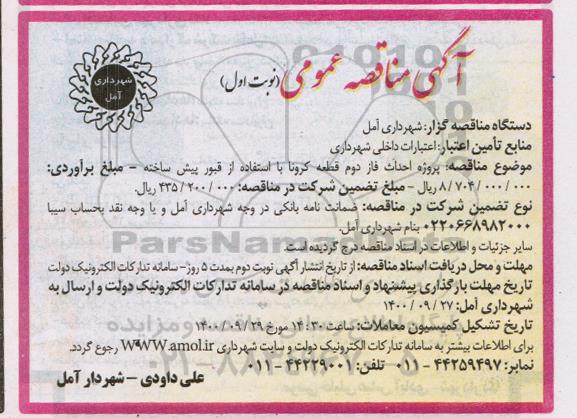 شهرداری
آمل
آگهی مناقصه عمومی (نوبت اول)
دستگاه مناقصه گزار: شهرداری آمل
منابع تأمین اعتبار: اعتبارات داخلی شهرداری
موضوع مناقصه: پروژه احداث فاز دوم قطعه کرونا با استفاده از قبور پیش ساخته - مبلغ برآوردی:
۸/۷۰۴/۰۰۰/۰۰۰ ریال - مبلغ تضمین شرکت در مناقصه: ۴۳۵/۲۰۰/۰۰۰ ریال.
نوع تضمین شرکت در مناقصه: ضمانت نامه بانکی در وجه شهرداری آمل و یا وجه نقد بحساب سیبا
۰۲۲۰۶۶۸۹۸۲۰۰۰ بنام شهرداری آمل.
سایر جزئیات و اطلاعات در اسناد مناقصه درج گردیده است.
مهلت و محل دریافت اسناد مناقصه: از تاریخ انتشار آگهی نوبت دوم بمدت ۵ روز- سامانه تدارکات الکترونیک دولت
تاریخ مهلت بارگذاری پیشنهاد و اسناد مناقصه در سامانه تدارکات الکترونیک دولت و ارسال به
شهرداری آمل: ۱۴۰۰/۰۹/۲۷
تاریخ تشکیل کمیسیون معاملات: ساعت ۱۴:۳۰ مورخ ۱۴۰۰/۰۹/۲۹
برای اطلاعات بیشتر به سامانه تدارکات الکترونیک دولت و سایت شهرداری WWW.amol.ir رجوع گردد.
نمابر: ۴۴۲۵۹۴۹۷-۰۱۱ تلفن: ۴۴۲۲۹۰۰۱-۰۱۱
علی داودی - شهردار آمل